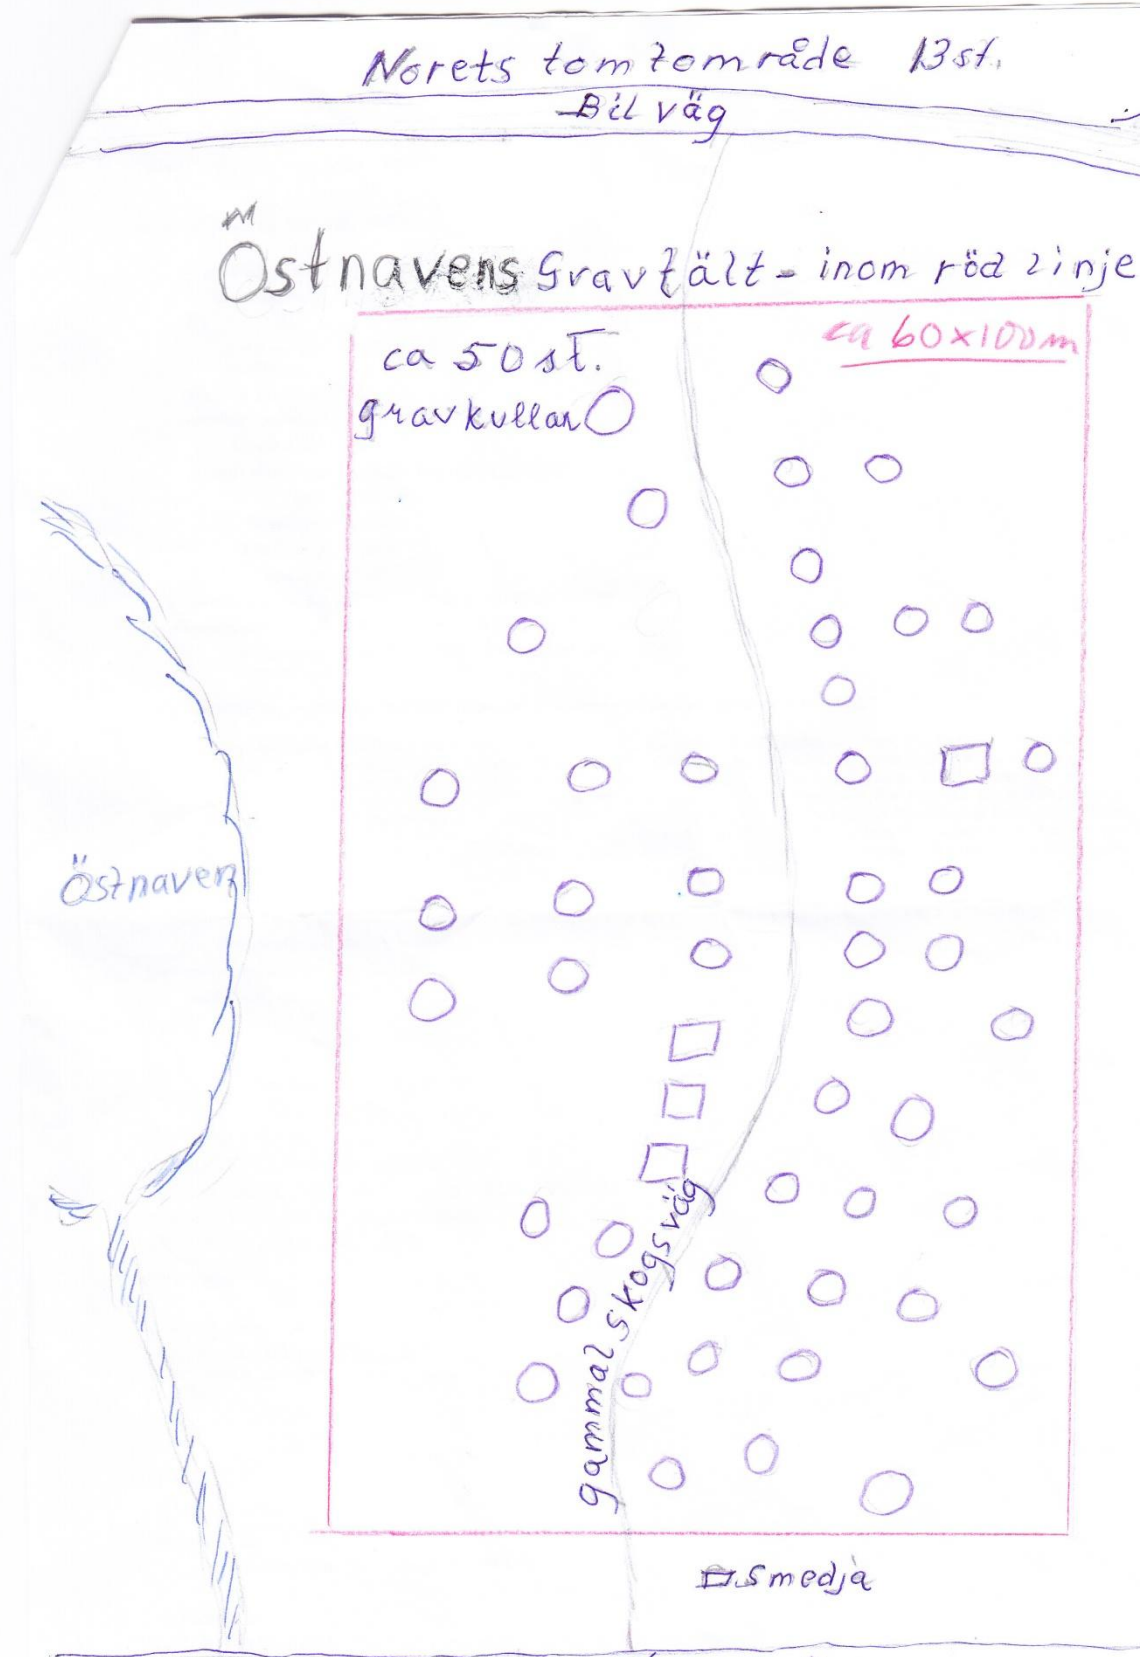 Norets tomtområde 13 st.
Bil väg
Östnavens Gravfält - inom röd linje
ca 60x100m
ca 50 st.
gravkullar
Östnaven
gammal skogsväg
smedja